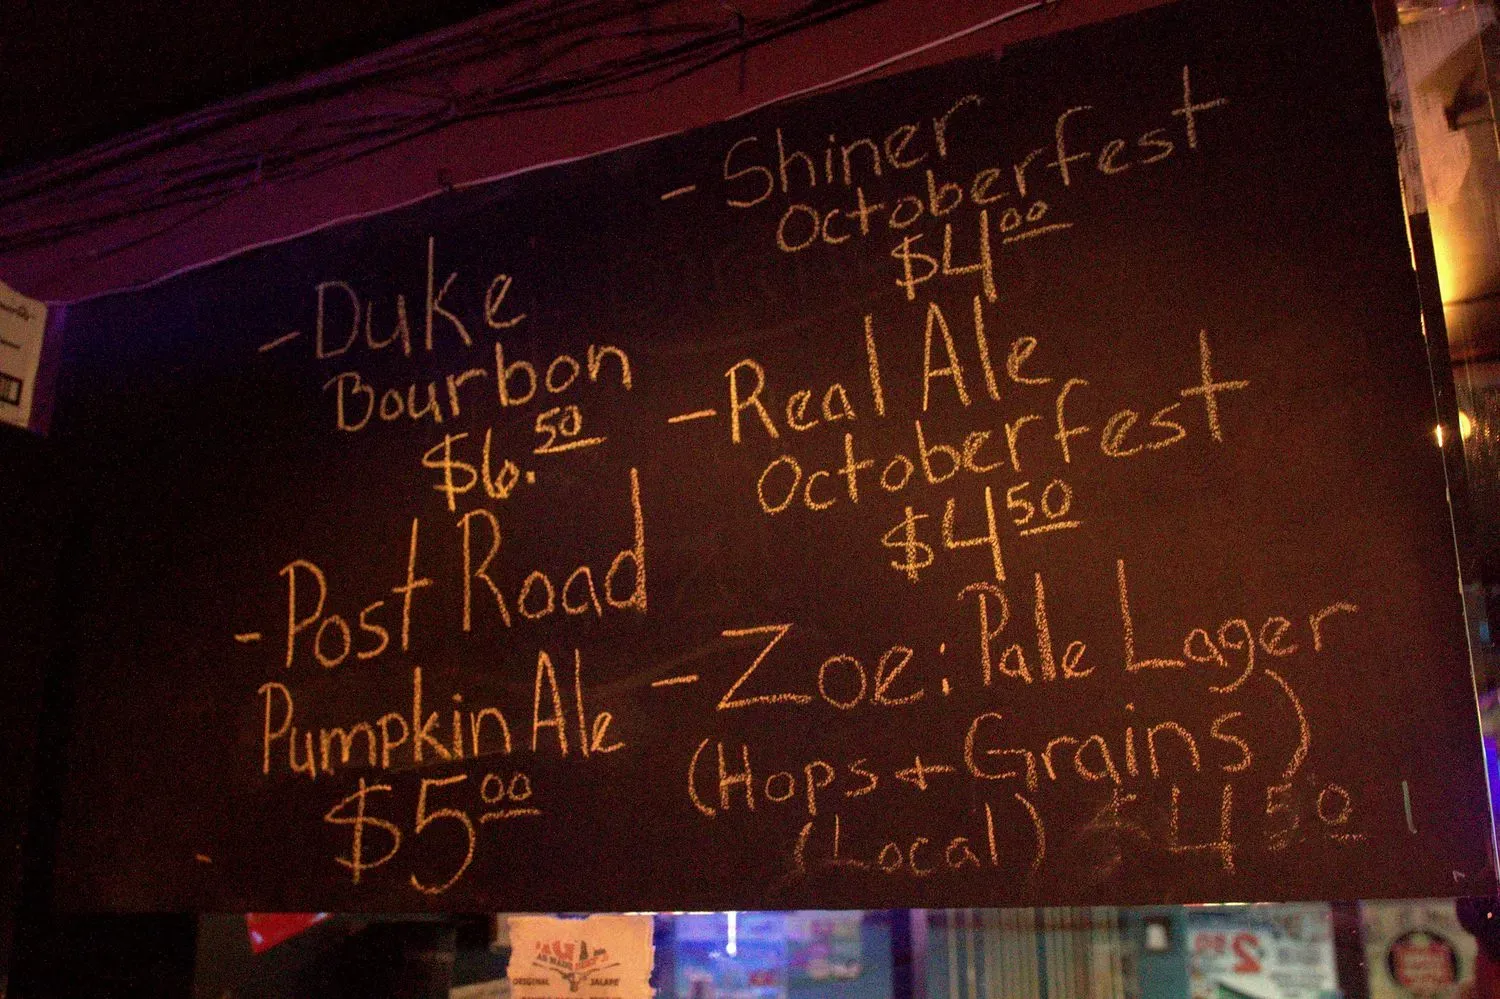 - Duke
Bourbon
$6.50
- Post Road
Pumpkin Ale
$5.00
- Shiner
Octoberfest
$4.00
- Real Ale
Octoberfest
$4.50
- Zoe: Pale Lager
(Hops + Grains)
(Local) $4.50
ORIGINAL JALAPE